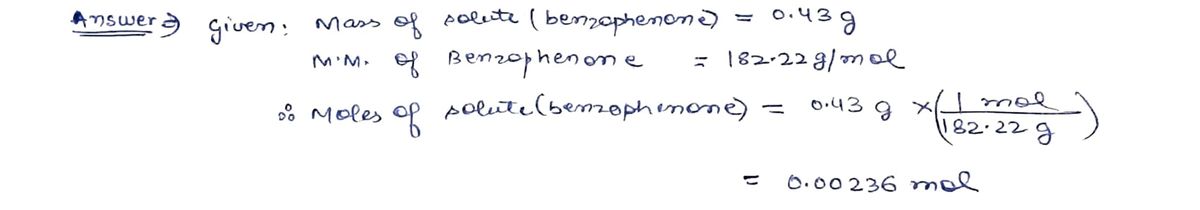 Answer ⇒ Given: Mass of solute (benzophenone) = 0.43 g
M.M. of Benzophenone = 182.22 g/mol
∴ Moles of solute (benzophenone) = 0.43 g × (1 mol / 182.22 g)
= 0.00236 mol